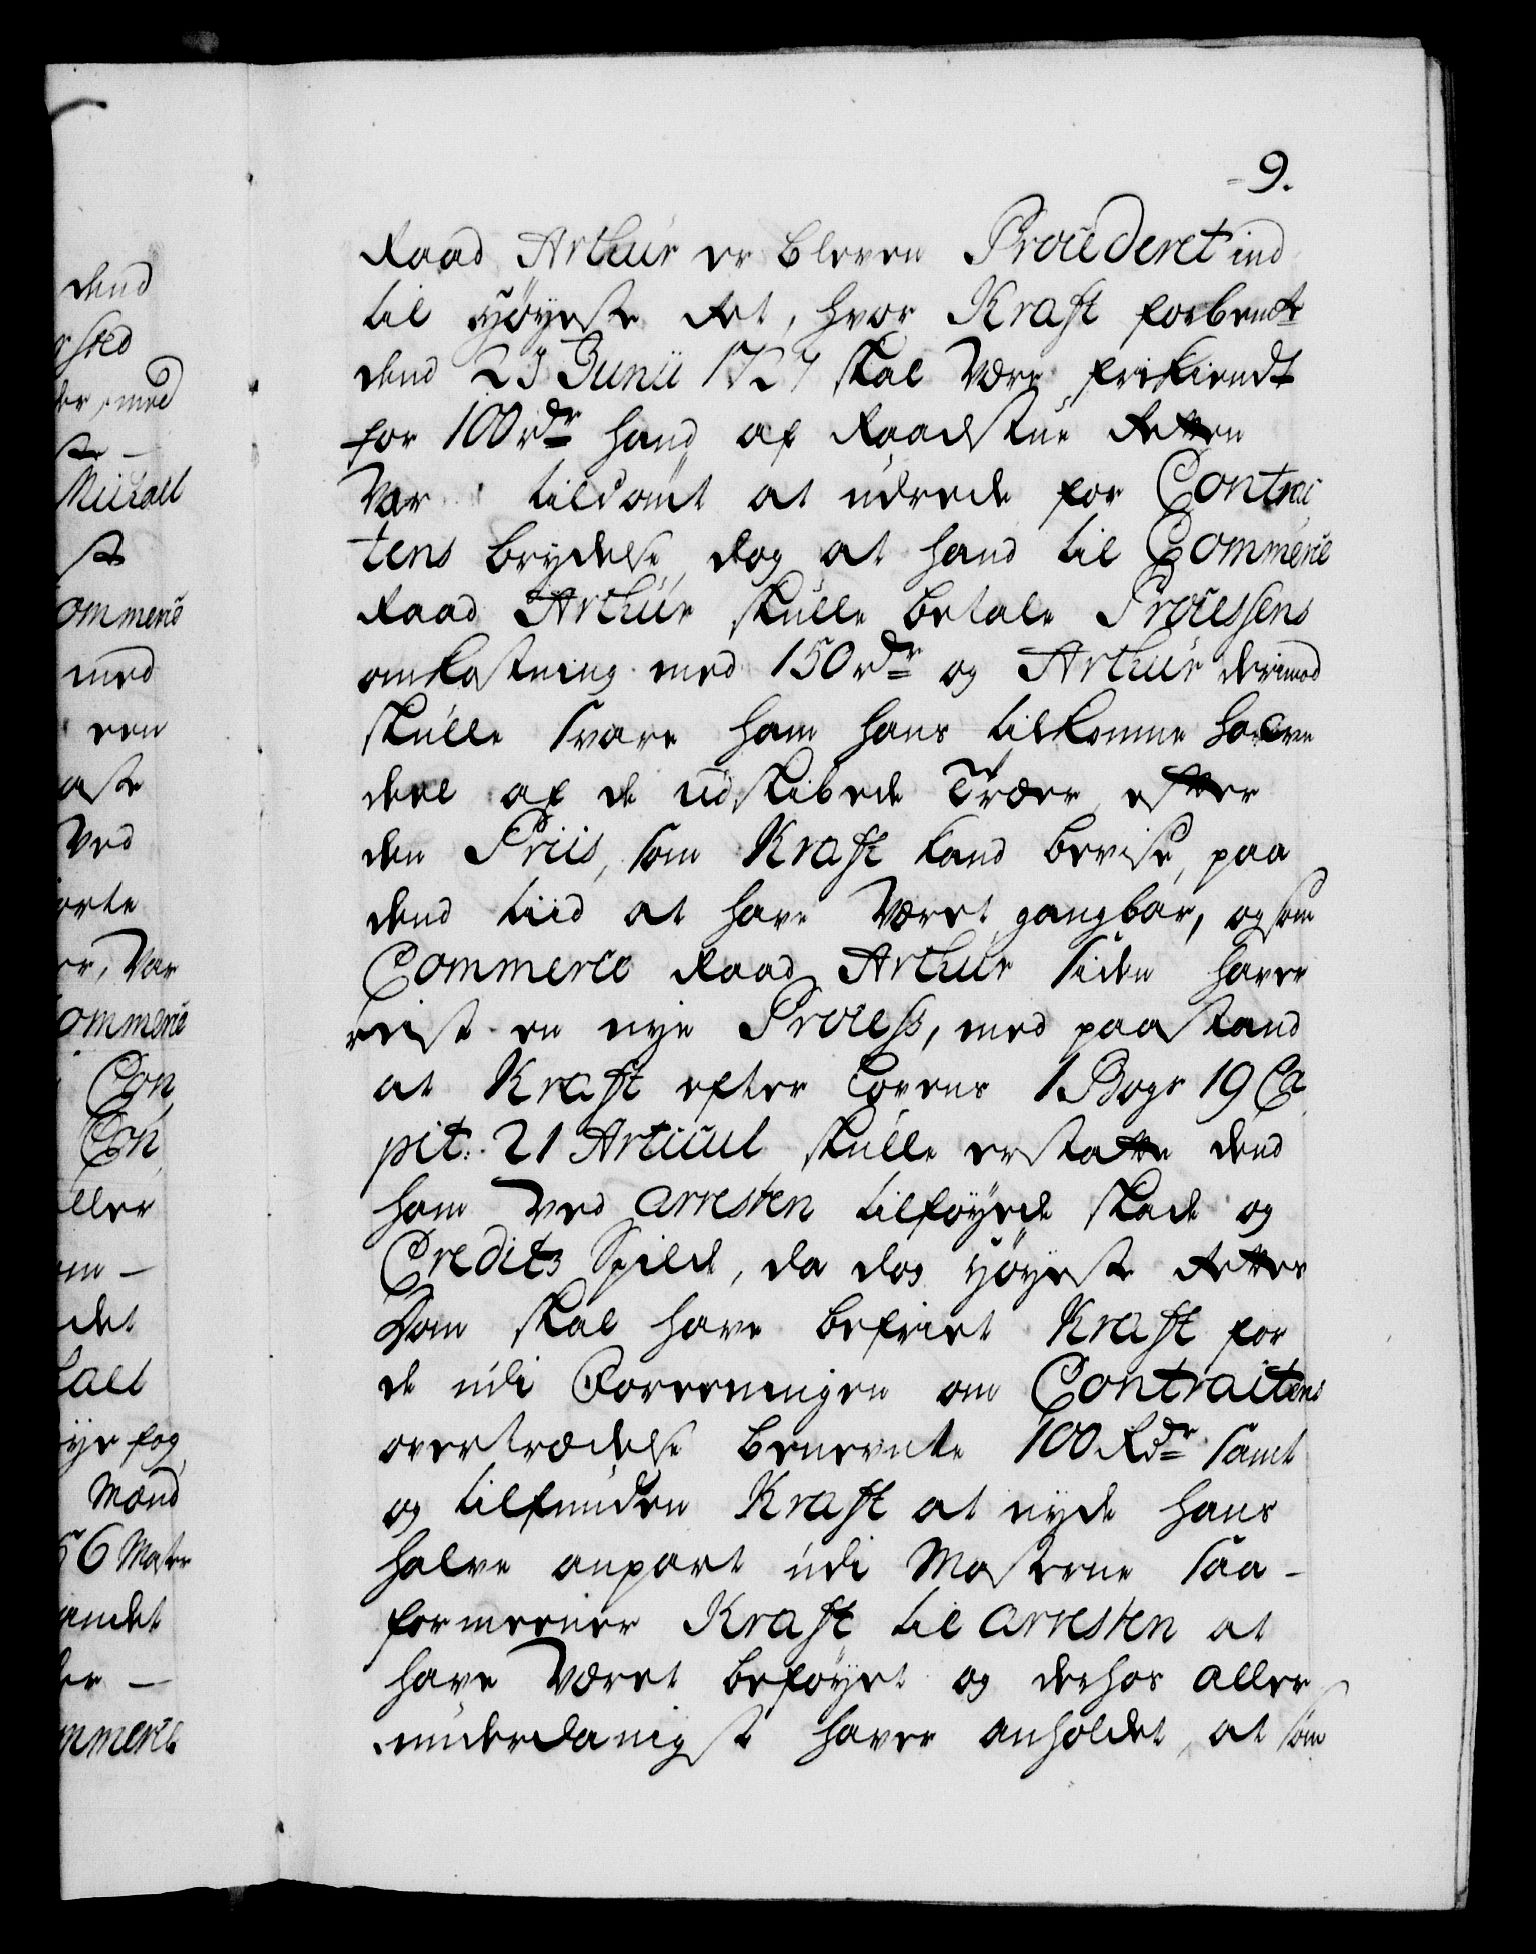 9.
Raad Arthur er bleven Procederet ind
til Høyeste Ret, hvor Kraft forbemt
dend 23 Junii 1727 skal være frikiendt
for 100 rdr hand af Raadstue Retten
var tildømt at udrede for Contrac
tens brydelse, dog at hand til Commerce
Raad Arthur skulle betale Processens
omkostning med 150 rdr og Arthur derimod
skulle svare ham hans tilkomme halve
deel af de udskibede Træer, efter
den Priis, som Kraft kand bevise, paa
dend tiid at have været gangbar, og som
Commerce Raad Arthur siden haver
reist en nye Process, med paastand
at Kraft efter Lovens 1 Bogs 19 Ca
pit: 21 Articul skulle erstatte dend
ham ved arresten tilføyede skade og
Credits Spild, da dog Høyeste Rettes
Dom skal have befriet Kraft for
de udi Foreeningen om Contractens
overtrædelse benevnte 100 Rdr samt
og tilfunden Kraft at nyde hans
halve anpart udi Masterne saa-
formeener Kraft til arresten at
have været beføyet og derhos aller
underdanigst haver anholdet, at som
dend
med
Michael
st
ommerce
med
een
aste
ved
orte
er, var
ommerce
Con
En
eller
det
hall
øye fog
Mand
56 Master
andet
mmerce